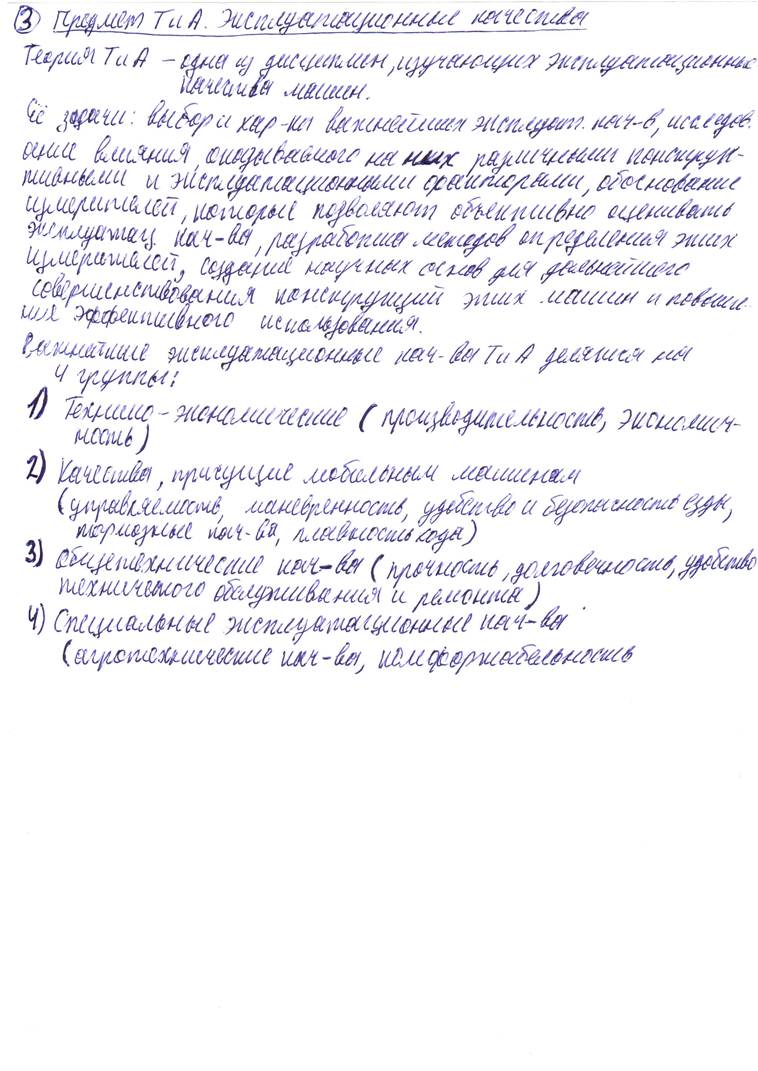 ③ Предмет ТиА. Эксплуатационные качества
Теория ТиА – одна из дисциплин, изучающих эксплуатационные
качества машин.
Её задачи: выбор и хар-ка важнейших эксплуат. кач-в, исследов-
ание влияния, оказываемого на них различными конструк-
тивными и эксплуатационными факторами, обоснование
измерителей, которые позволяют объективно оценивать
эксплуатац. кач-ва, разработка методов определения этих
измерителей, создание научных основ для дальнейшего
совершенствования конструкций этих машин и повыше-
ния эффективного использования.
Важнейшие эксплуатационные кач-ва ТиА делятся на
4 группы:
1) Технико-экономические (производительность, экономич-
ность)
2) Качества, присущие мобильным машинам
(управляемость, маневренность, удобство и безопасность езды,
тормозные кач-ва, плавность хода)
3) Общетехнические кач-ва (прочность, долговечность, удобство
технического обслуживания и ремонта)
4) Специальные эксплуатационные кач-ва
(агротехнические кач-ва, комфортабельность